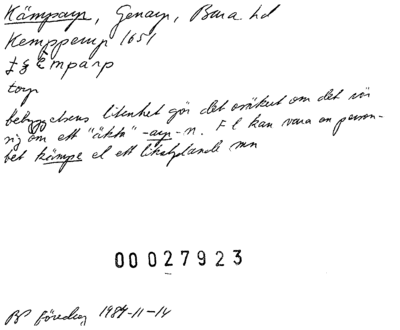 Kämparp, Genarp, Bara hd
Kempperup 1651
torp
bebyggelsens litenhet gör det osäkert om det rör
sig om ett "äkta" -arp-n. F l kan vara en person-
bet kämpe el ett likalydande mn
00027923
BP föredrag 1984-11-14